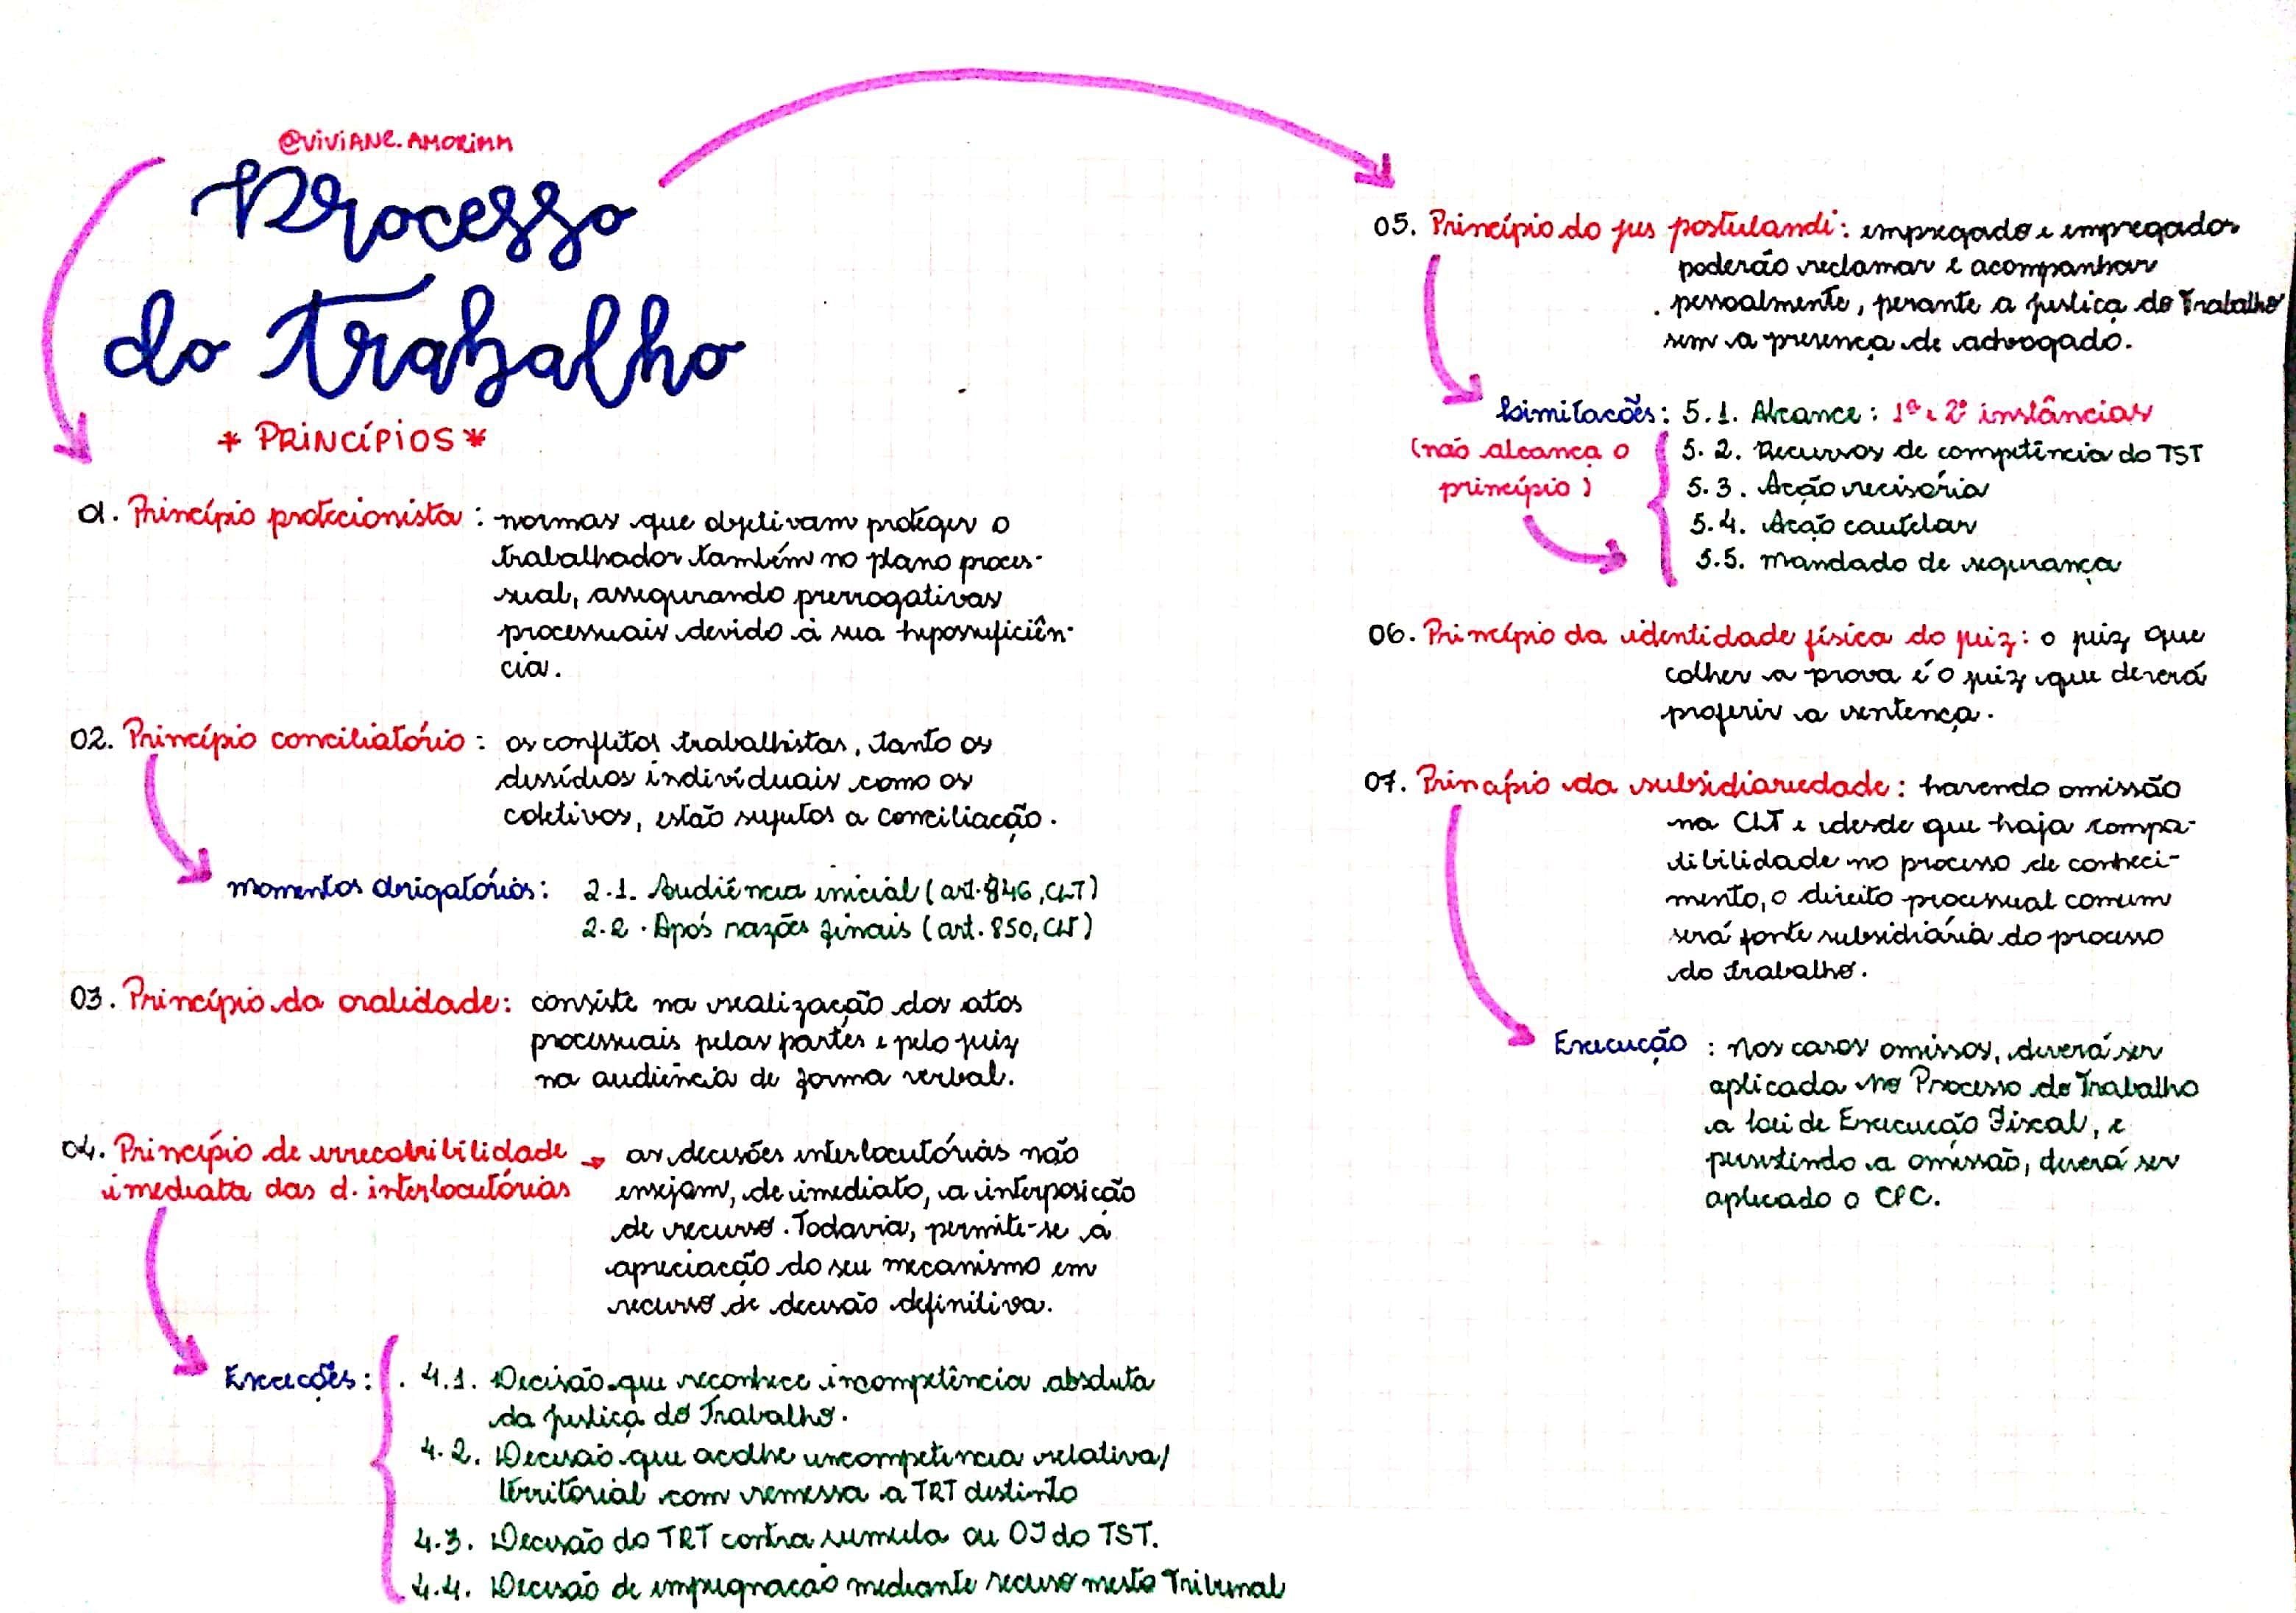 @viviane.amorimm
Processo
do Trabalho
* PRINCÍPIOS *
01. Princípio protecionista: normas que objetivam proteger o
trabalhador também no plano proces-
sual, assegurando prerrogativas
processuais devido à sua hipossuficiên-
cia.
02. Princípio conciliatório: os conflitos trabalhistas, tanto os
dissídios individuais como os
coletivos, estão sujeitos a conciliação.
Momentos obrigatórios: 2.1. Audiência inicial (art. 846, CLT)
2.2. Após razões finais (art. 850, CLT)
03. Princípio da oralidade: consiste na realização dos atos
processuais pelas partes e pelo juiz
na audiência de forma verbal.
04. Princípio de irrecorribilidade → as decisões interlocutórias não
imediata das d. interlocutórias ensejam, de imediato, a interposição
de recurso. Todavia, permite-se a
apreciação do seu mecanismo em
recurso de decisão definitiva.
Exceções: 4.1. Decisão que reconhece incompetência absoluta
da Justiça do Trabalho.
4.2. Decisão que acolhe incompetência relativa/
territorial com remessa a TRT distinto
4.3. Decisão do TRT contra súmula ou OJ do TST.
4.4. Decisão de impugnação mediante recurso mesto Tribunal
05. Princípio do jus postulandi: empregado e empregador
poderão reclamar e acompanhar
pessoalmente, perante a Justiça do Trabalho
sem a presença de advogado.
Limitações: 5.1. Alcance: 1ª e 2ª instâncias
(não alcança o 5.2. Recursos de competência do TST
princípio) 5.3. Ação recisória
5.4. Ação cautelar
5.5. Mandado de segurança
06. Princípio da identidade física do juiz: o juiz que
colher a prova é o juiz que deverá
proferir a sentença.
07. Princípio da subsidiariedade: havendo omissão
na CLT e desde que haja compa-
tibilidade no processo de conheci-
mento, o direito processual comum
será fonte subsidiária do processo
do trabalho.
Execução: Nos casos omissos, deverá ser
aplicada no Processo do Trabalho
a Lei de Execução Fiscal, e
persistindo a omissão, deverá ser
aplicado o CPC.